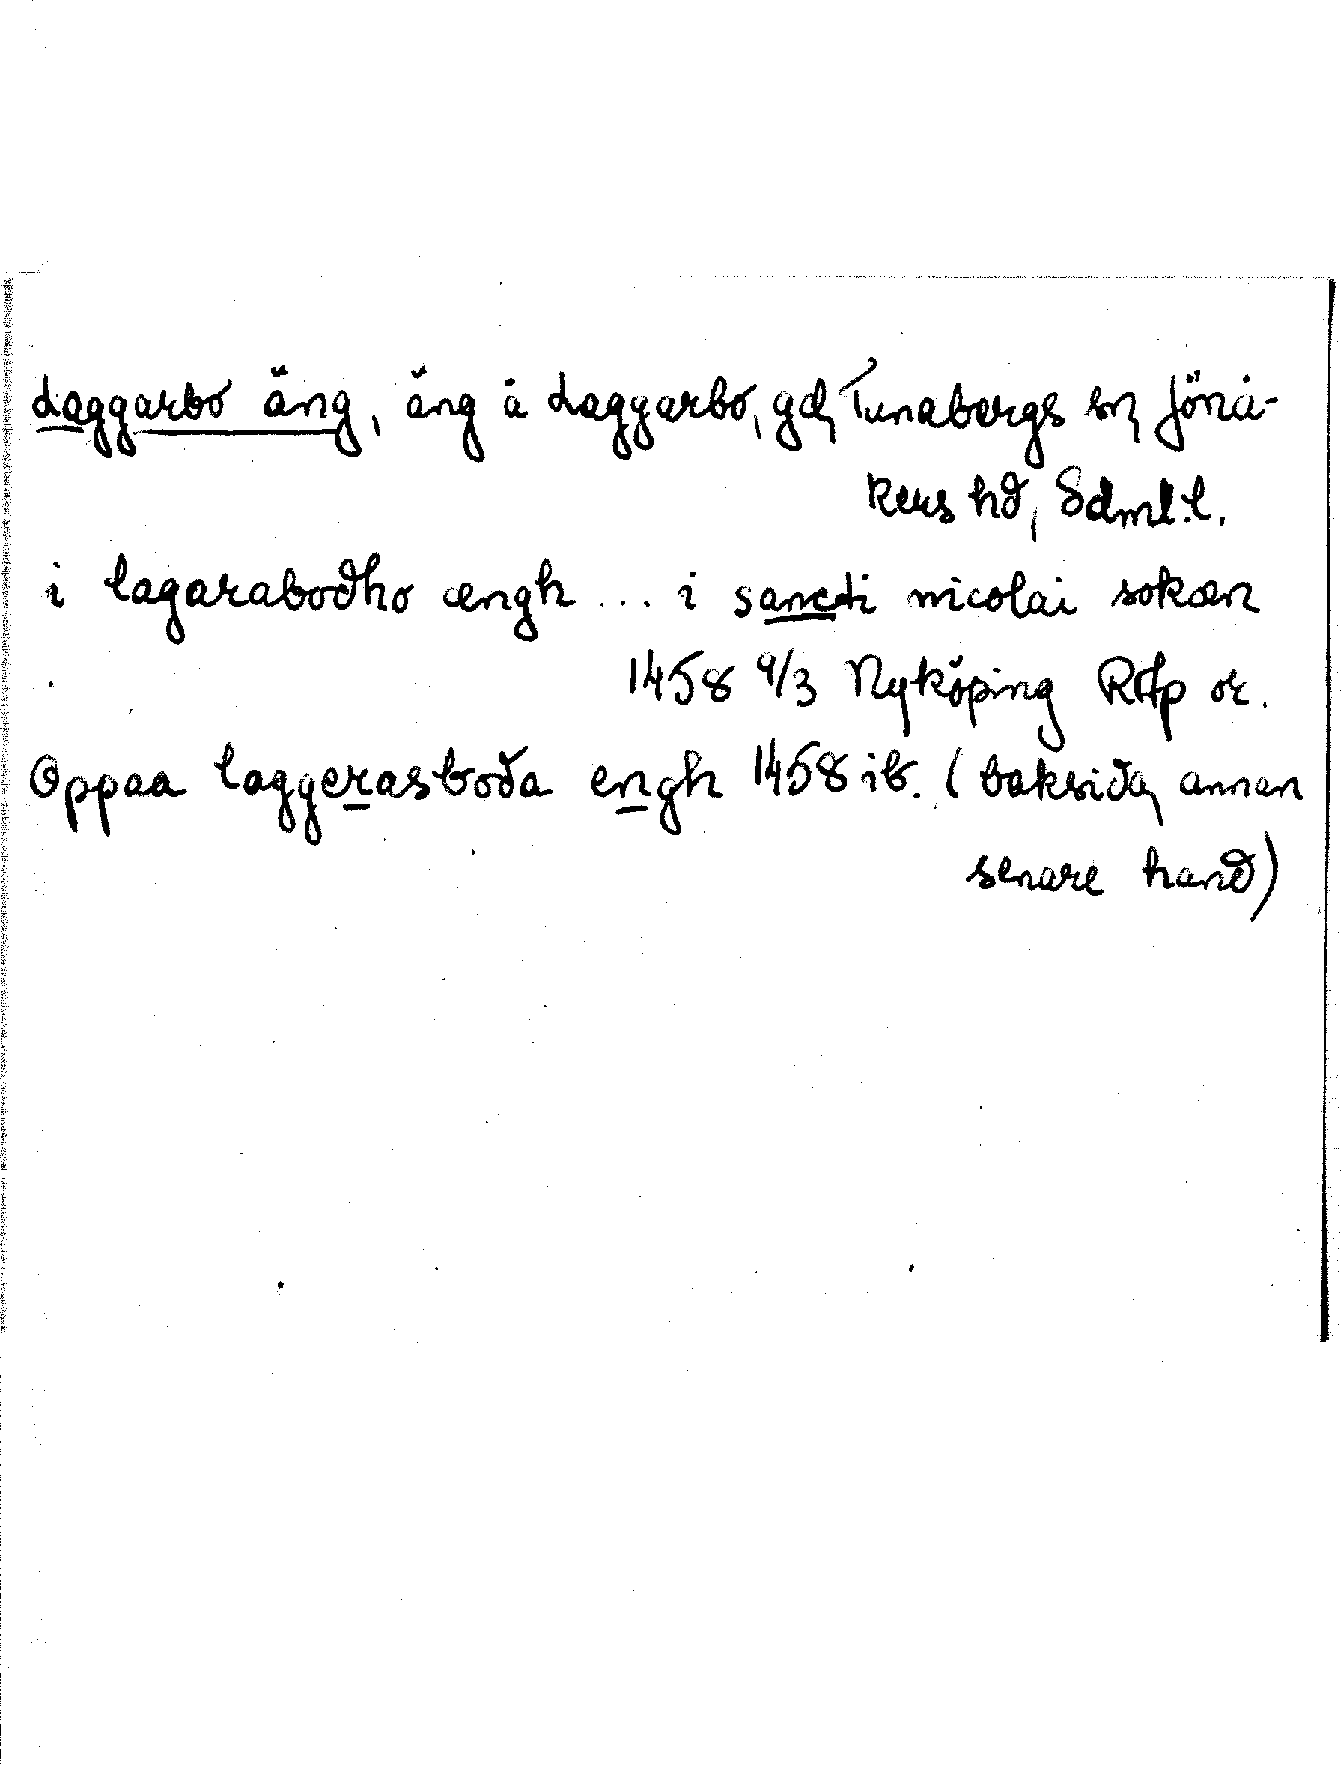 Laggarbo äng, äng å Laggarbo, gd, Tunabergs sn, Jönå-
kers hd, Sdml.l.
i lagaraboðho ængh ... i sancti nicolai sokæn
1458 9/3 Nyköping RAp or.
Oppaa laggerasboda engh 1458 ib. (baksida, annan
senare hand)